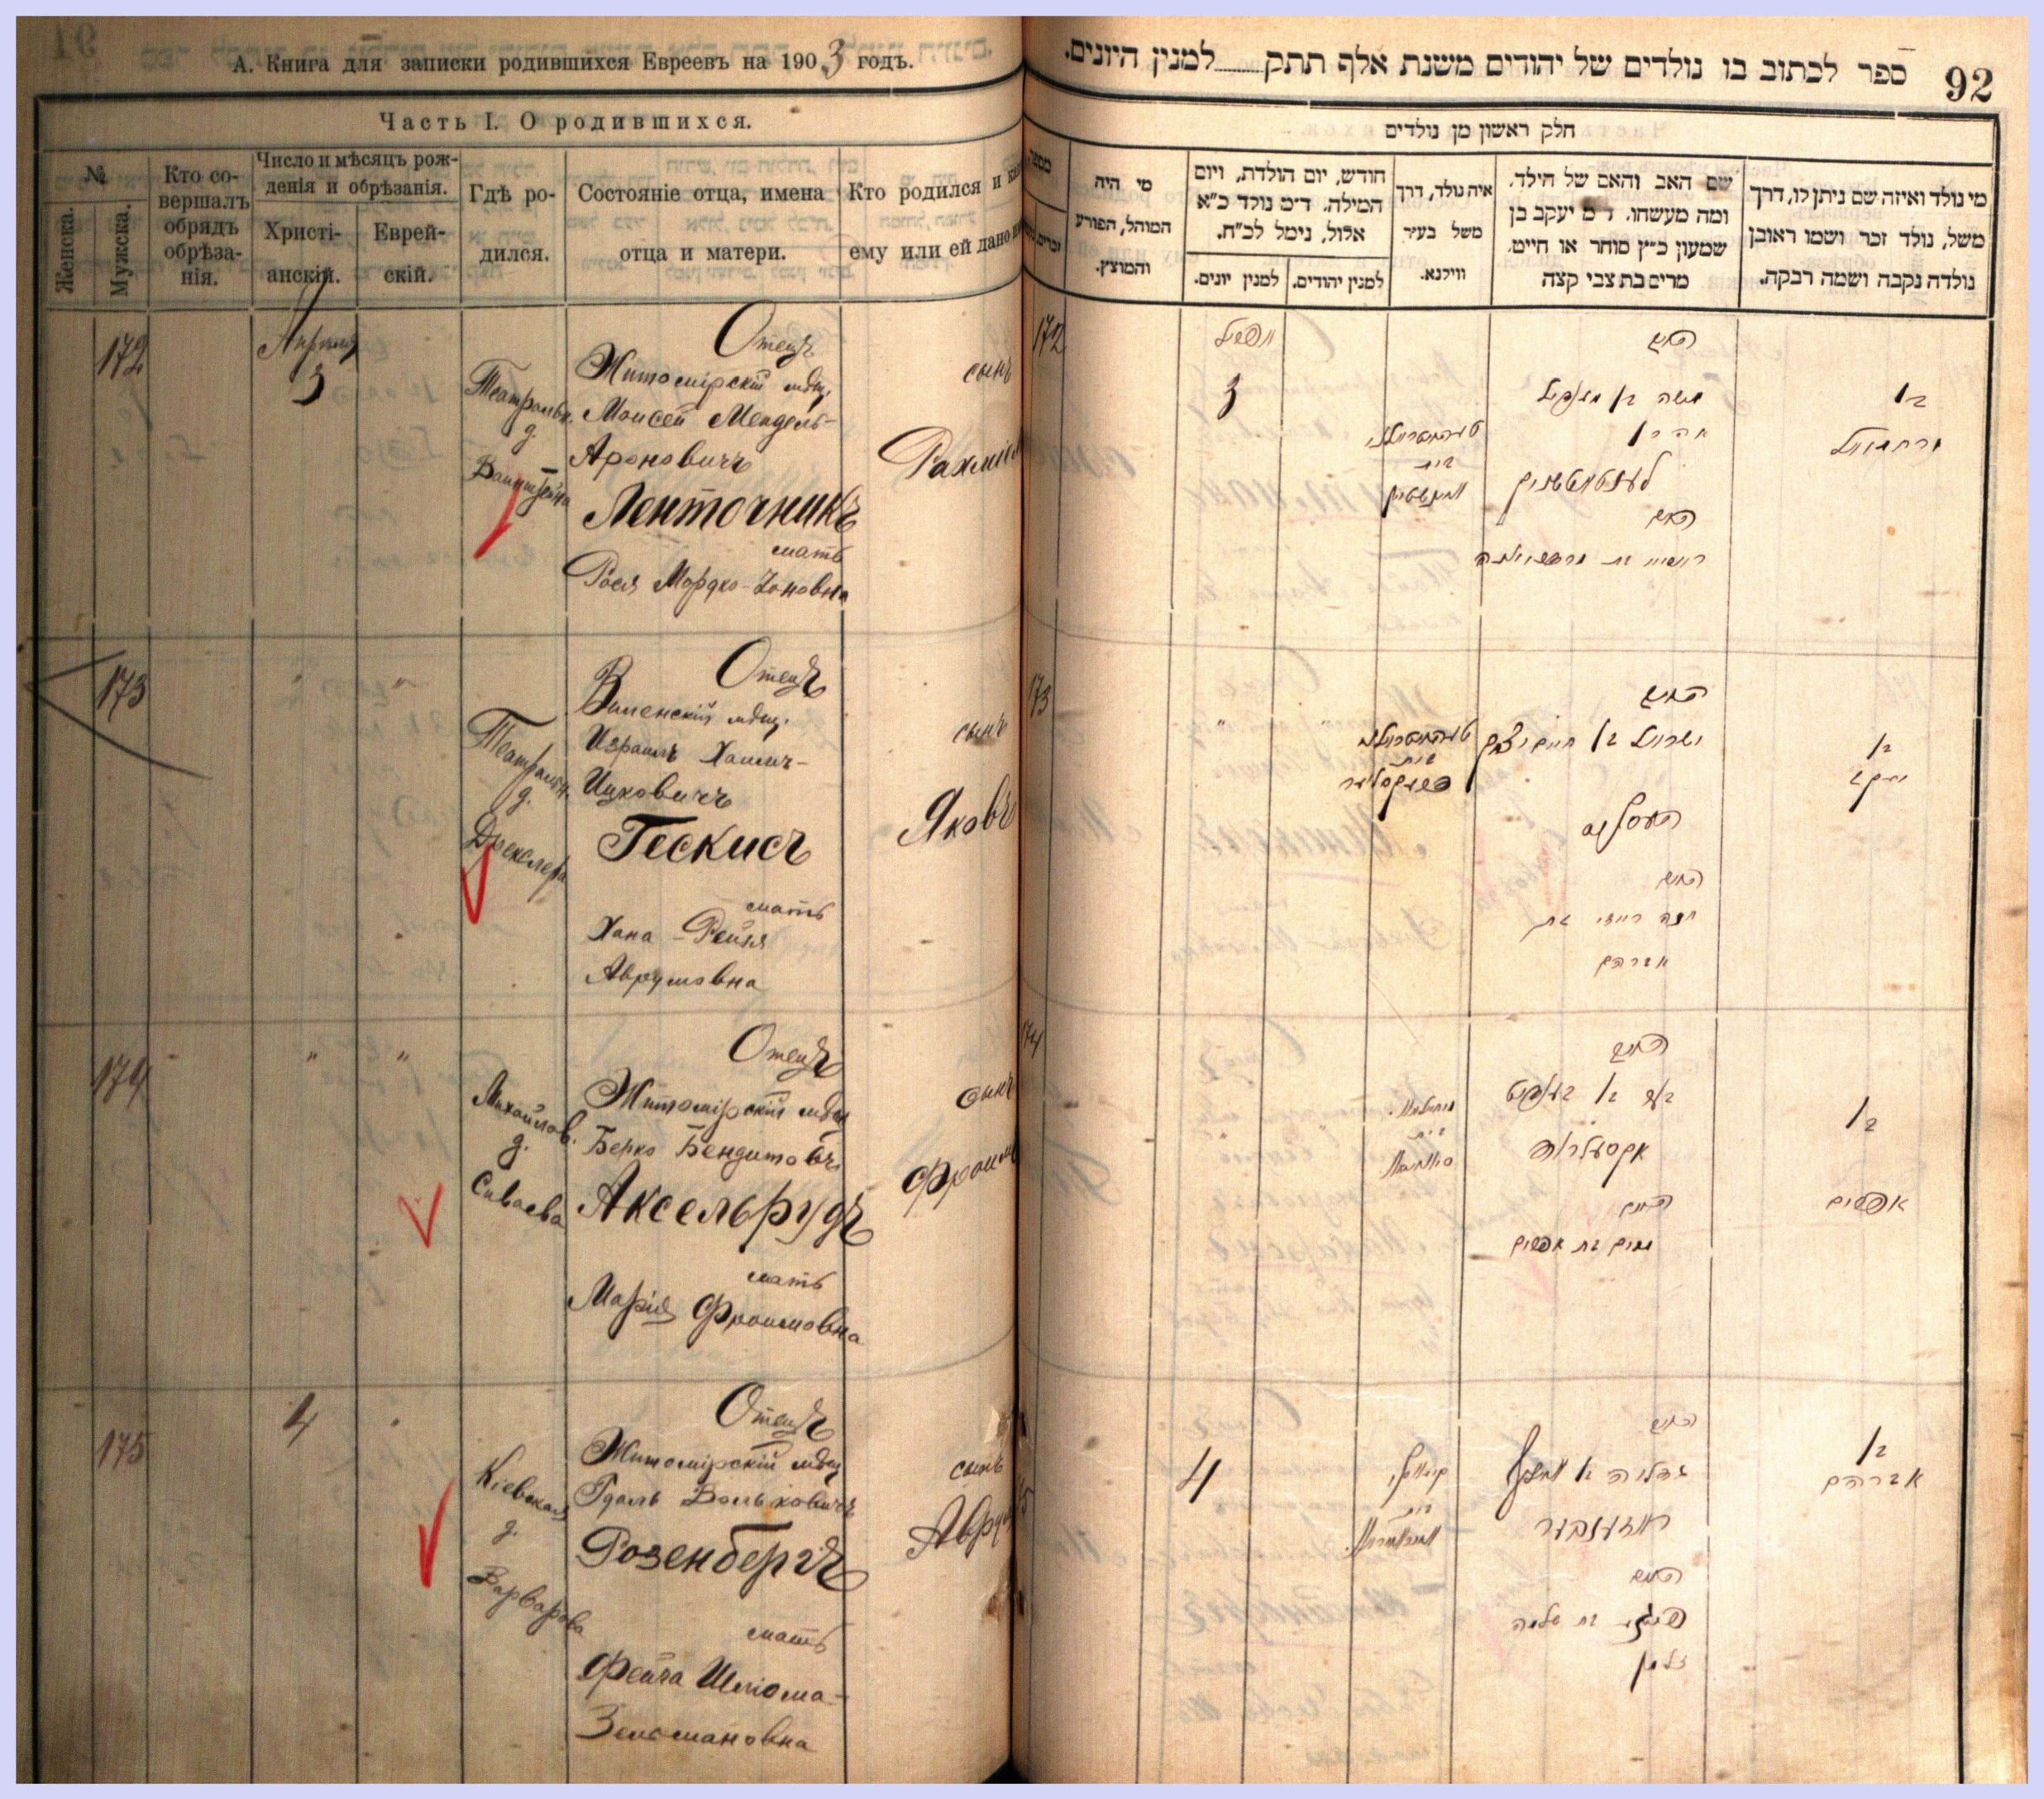 А. Книга для записки родившихся Евреевъ на 1903 годъ.
Часть I. О родившихся.
№
Женска.
Мужска.
Кто со-
вершалъ
обрядъ
обрѣза-
нія.
Число и мѣсяцъ рож-
денія и обрѣзанія.
Христі-
анскій.
Еврей-
скій.
Гдѣ ро-
дился.
Состояніе отца, имена
отца и матери.
Кто родился и
ему или ей дано
172
Апрѣля
3
Театральн.
д.
Отецъ
Житомірскій мѣщ.
Моисей Мендель-
Ароновичъ
Ленточникъ
мать
Рося Мордко-Зоновна
сынъ
Рахмиль
173
"
"
Театральн.
д.
Дрекслера
Отецъ
Виленскій мѣщ.
Израиль Хаимъ-
Ицковичъ
Гескисъ
мать
Хана-Рейзя
Аврумовна
сынъ
Яковъ
174
"
"
Михайлов.
д.
Сиваева
Отецъ
Житомірскій мѣщ
Берко Бендитовъ
Аксельрудъ
мать
Марія Фроимовна
сынъ
Фроим
175
4
Кіевская
д.
Варварова
Отецъ
Житомірскій мѣщ
Гдаль Вольковичъ
Розенбергъ
мать
Фейга Шліома-
Зельмановна
сынъ
Авру
92
ספר לכתוב בו נולדים של יהודים משנת אלף תתק למנין היונים.
חלק ראשון מן נולדים
מי היה
המוהל, הפורע
והמוצץ.
חודש, יום הולדת, ויום
המילה. ד״מ נולד כ״א
אלול, נימל לכ״ח.
למנין יונים.
למנין יהודים.
איה נולד, דרך
משל בעיר
ווילנא.
שם האב והאם של הילד,
ומה מעשהו. ד״מ יעקב בן
שמעון כ״ץ סוחר או חייט,
מרים בת צבי קצה
מי נולד ואיזה שם ניתן לו, דרך
משל, נולד זכר ושמו ראובן
נולדה נקבה ושמה רבקה.
172
אפריל
3
האב
משה בן מענדיל
אהרן
לענטאטשניק
האם
בן
ירחמיאל
173
"
"
האב
ישראל בן חיים יצחק
העסקיס
האם
חנה רייזי בת
אברהם
בן
יעקב
174
האב
בער בן בענדיט
אקסעלראד
האם
מרים בת אפרים
בן
אפרים
4
האב
גדליה בן וואלף
ראזענבערג
האם
פייגא בת שלמה
זלמן
בן
אברהם